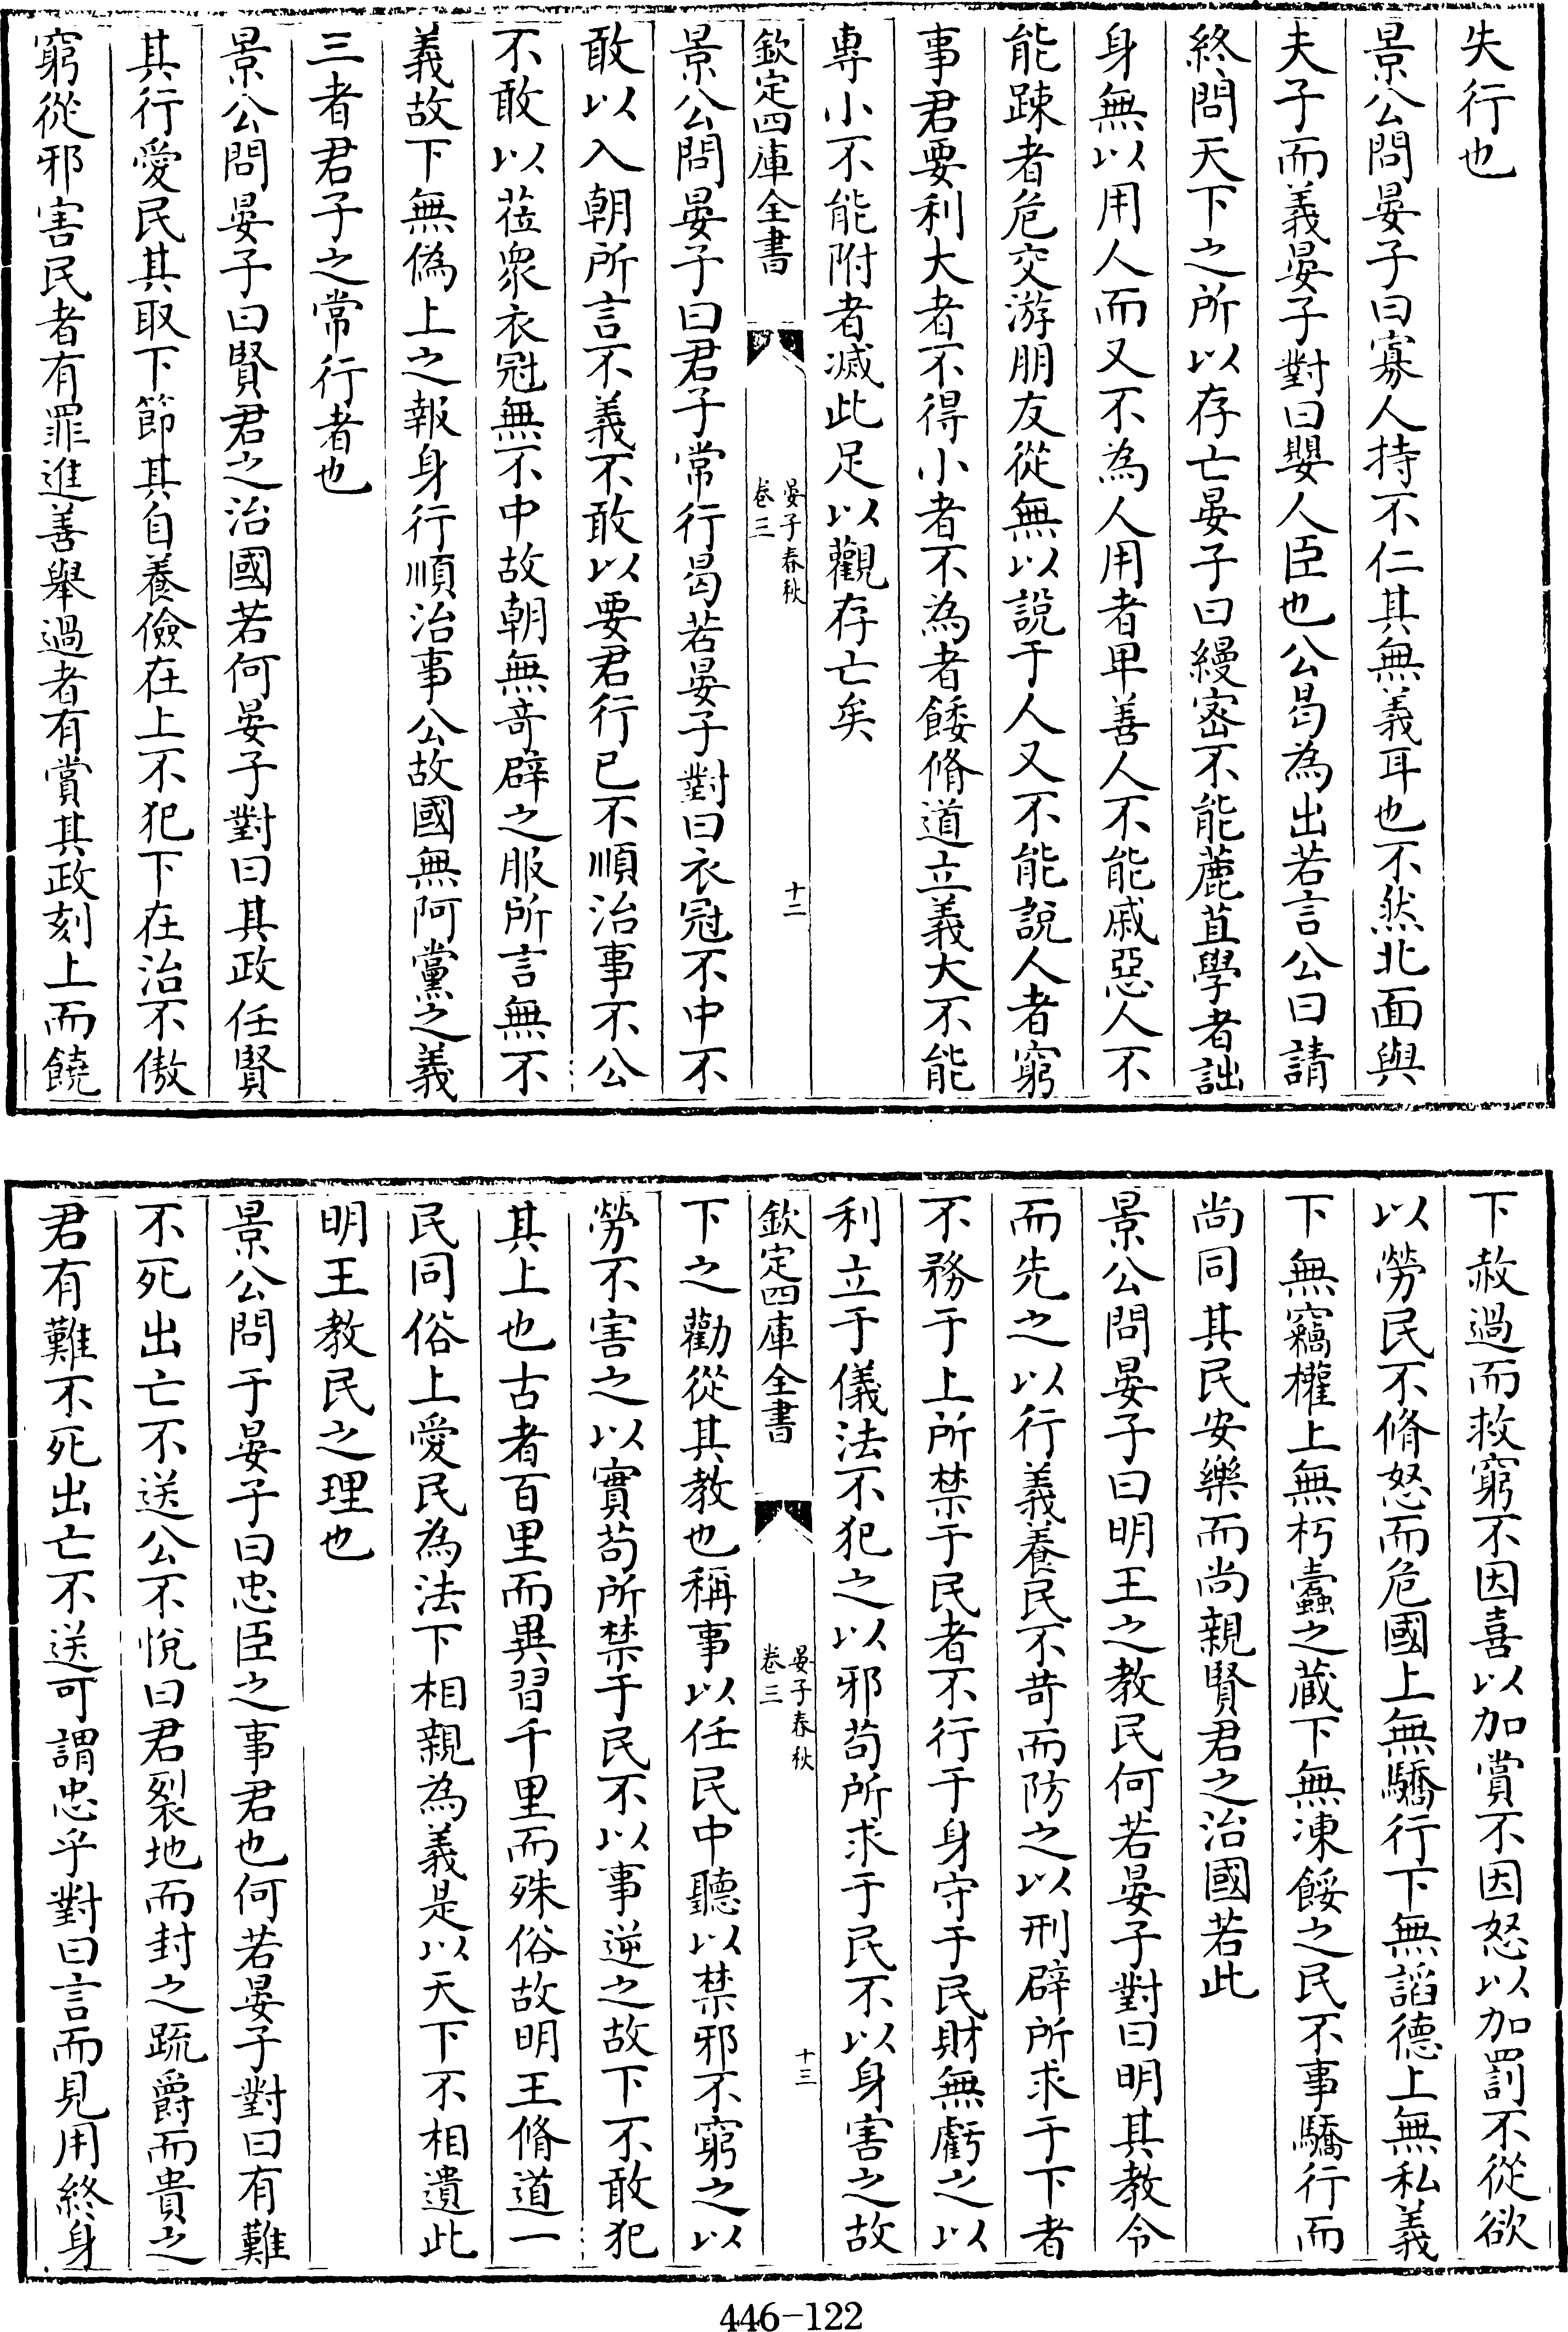 失行也
景公問晏子曰寡人持不仁其無義耳也不然北面與
夫子而義晏子對曰嬰人臣也公曷為出若言公曰請
終問天下之所以存亡晏子曰縵宻不能蔍苴學者詘
身無以用人而又不為人用者卑善人不能戚惡人不
能踈者危交游朋友從無以說于人又不能說人者窮
事君要利大者不得小者不為者餧脩道立義大不能
專小不能附者滅此足以觀存亡矣
欽定四庫全書
晏子春秋
卷三
十二
景公問晏子曰君子常行曷若晏子對曰衣冠不中不
敢以入朝所言不義不敢以要君行已不順治事不公
不敢以莅衆衣冠無不中故朝無竒辟之服所言無不
義故下無偽上之報身行順治事公故國無阿黨之義
三者君子之常行者也
景公問晏子曰賢君之治國若何晏子對曰其政任賢
其行愛民其取下節其自養儉在上不犯下在治不傲
窮從邪害民者有罪進善舉過者有賞其政刻上而饒
下赦過而救窮不因喜以加賞不因怒以加罰不從欲
以勞民不脩怒而危國上無驕行下無謟德上無私義
下無竊權上無朽蠧之藏下無凍餒之民不事驕行而
尚同其民安樂而尚親賢君之治國若此
景公問晏子曰明王之教民何若晏子對曰明其教令
而先之以行義養民不苛而防之以刑辟所求于下者
不務于上所禁于民者不行于身守于民財無虧之以
利立于儀法不犯之以邪茍所求于民不以身害之故
欽定四庫全書
晏子春秋
卷三
十三
下之勸從其教也稱事以任民中聽以禁邪不窮之以
勞不害之以實茍所禁于民不以事逆之故下不敢犯
其上也古者百里而異習千里而殊俗故明王脩道一
民同俗上愛民為法下相親為義是以天下不相遺此
明王教民之理也
景公問于晏子曰忠臣之事君也何若晏子對曰有難
不死出亡不送公不悅曰君裂地而封之疏爵而貴之
君有難不死出亡不送可謂忠乎對曰言而見用終身
446-122